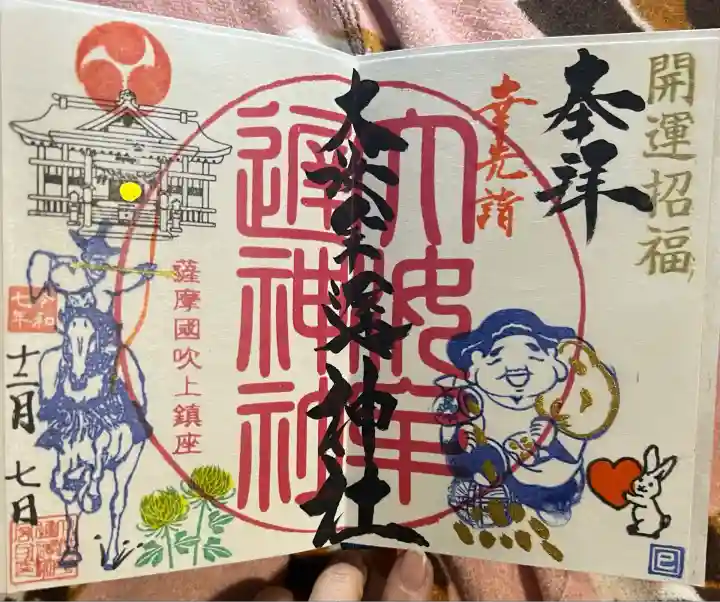 開運招福
奉拝
幸先詣
大汝牟遅神社
大汝牟
遅神社
薩摩國吹上鎮座
令和
七年
十二月七日
巳